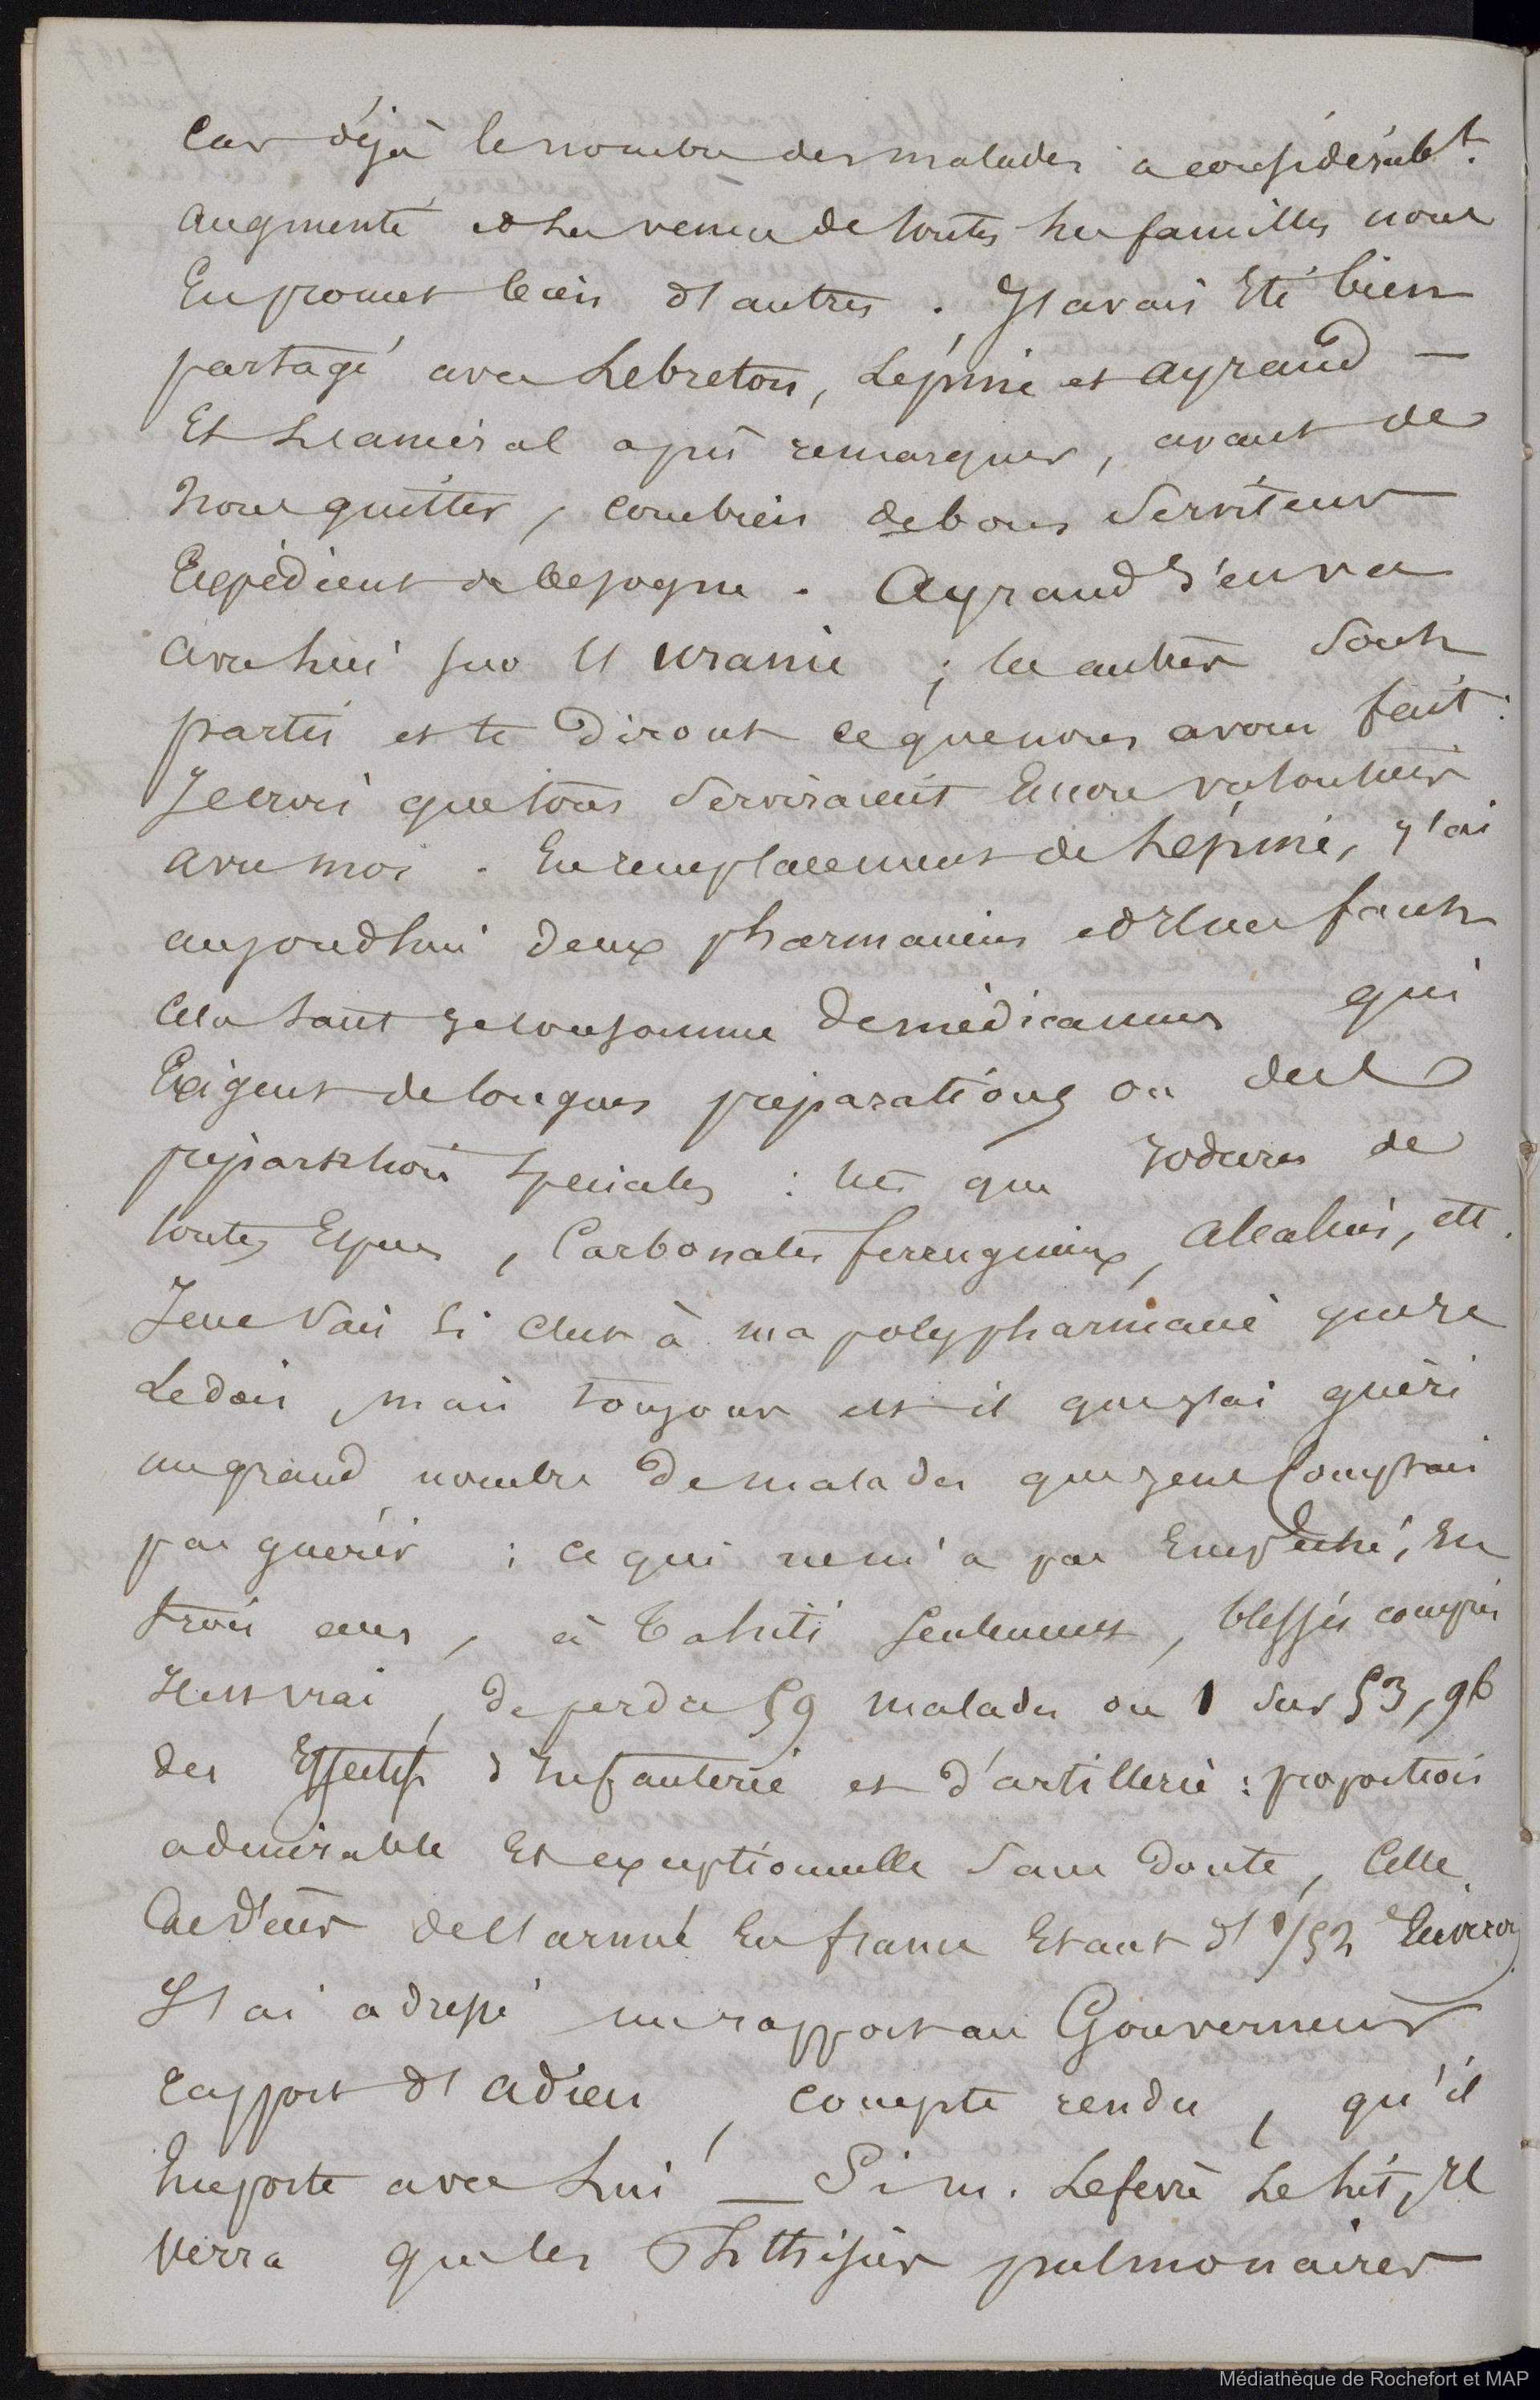 Car déjà le nombre des malades a considérablt.
augmenté et la venue de toutes les familles nous
En promet bien d'autres. J'avais Eté bien
partagé avec Lebreton, Lépine et Ayraud —
Et L'amiral a pu remarquer, avant de
nous quitter, combien de bons Serviteurs
Expédient de besogne. Ayraud S'en va
avec lui sur l'Uranie ; les autres Sont
partis et te Diront ce que nous avons fait :
Je crois que tous Serviraient Encore volontiers
avec moi. En remplacement de Lépine, j'ai
aujourdhui deux pharmaciens et Il me faut
Cela tant Je consomme de médicamens qui
Exigent de longues préparations ou des
préparations spéciales : tels que Iodures de
toutes Espèces, Carbonates ferrugineux, Alcalins, ett.
Je ne Sais si c'est à ma polypharmacie que Je
Le dois, mais toujours est il que j'ai guéri
un grand nombre de malades que je ne Comptais
pas guérir : ce qui ne m'a pas Empêché, En
trois ans, à Tahiti seulement, blessés compris
Il est vrai, de perdre 59 malades ou 1 sur 53,96
des Effectifs d'Infanterie et d'artillerie : proportion
admirable Et exceptionnelle Sans Doute, Celle
des décès de l'armée En france Etant d'1/52 Environ
J'ai adressé un rapport au Gouverneur
rapport d'adieu, compte rendu, qu'il
Emporte avec Lui — Si m. Lefevre Le lit, Il
verra que les Phthisies pulmonaires
Médiathèque de Rochefort et MAP